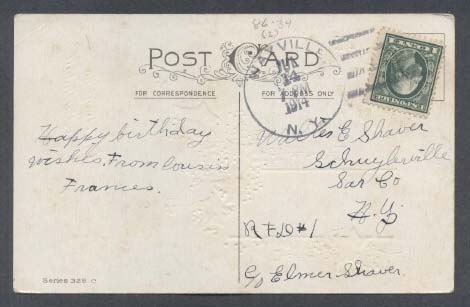 POST CARD
FOR CORRESPONDENCE
FOR ADDRESS ONLY
JUL
14
PM
1914
N.Y.
1 CENT 1
Happy birthday
wishes, From cousin
Frances.
E Shaver
Schuylerville
Sar Co
N.Y.
RFD#1
C/o Elmer Shaver
Series 328 C